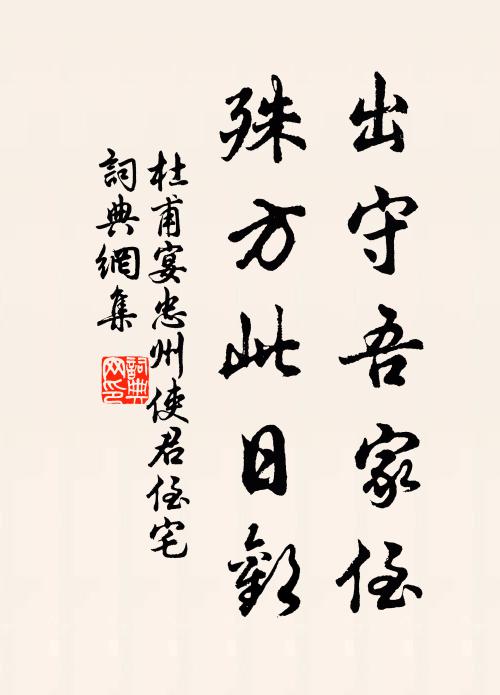 出守吾家侄
殊方此日歡
杜甫宴忠州使君侄宅
詞典網集
詞典网印